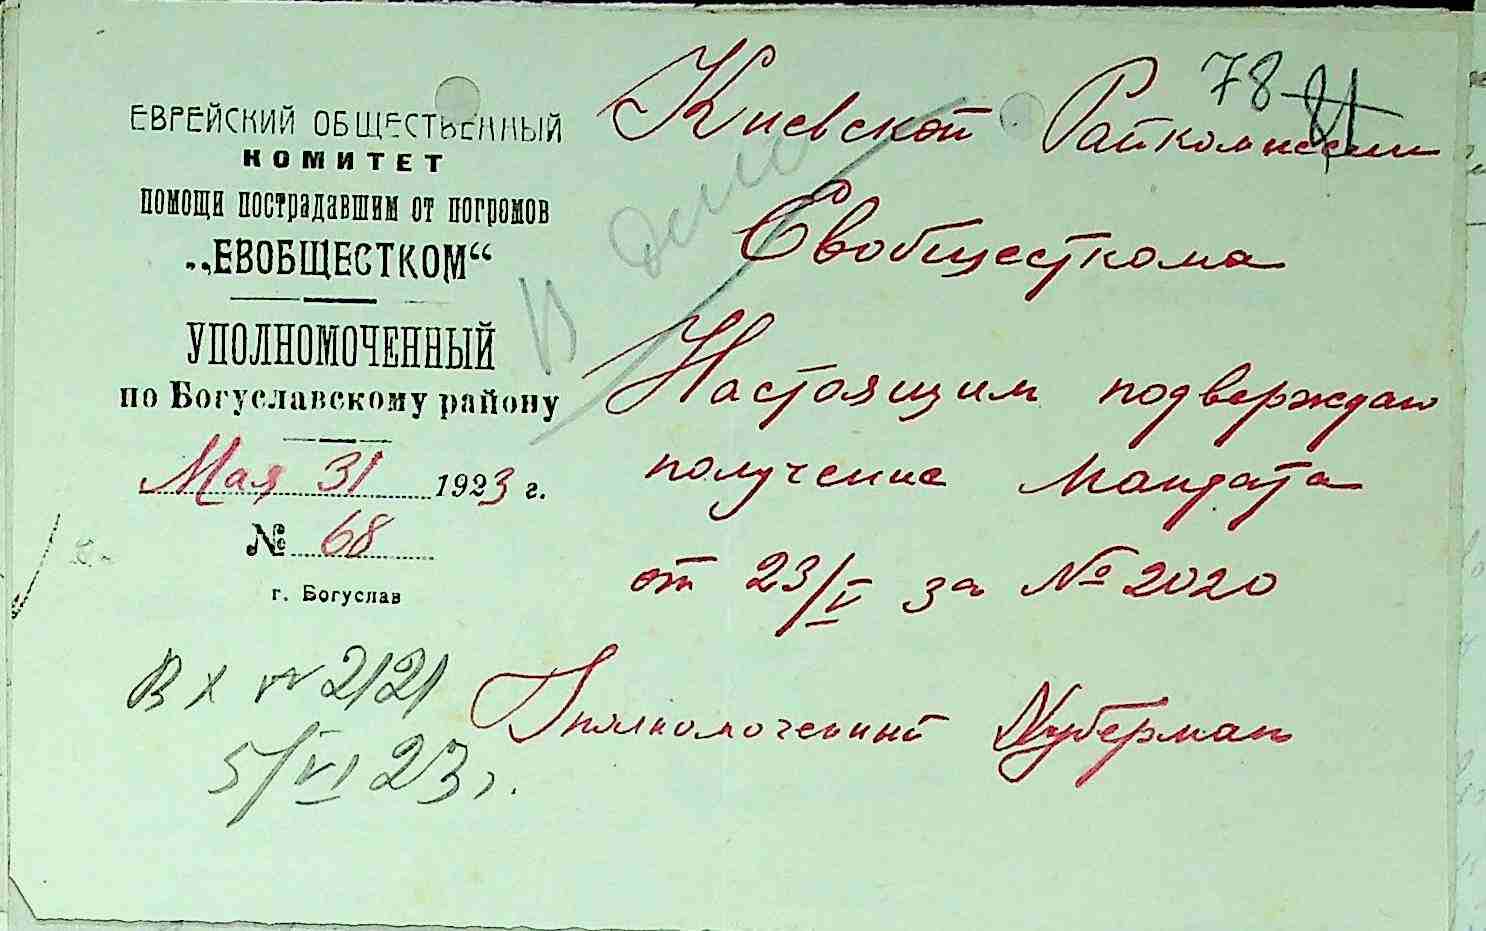 78
ЕВРЕЙСКИЙ ОБЩЕСТВЕННЫЙ
КОМИТЕТ
ПОМОЩИ ПОСТРАДАВШИМ ОТ ПОГРОМОВ
„ЕВОБЩЕСТКОМ“
УПОЛНОМОЧЕННЫЙ
по Богуславскому району
Мая 31 1923 г.
№ 68
г. Богуслав
Вх № 2121
5/VI 23 г.
В дело
Киевской Райкомиссии
Евобщесткома
Настоящим подверждаю
получение мандата
от 23/V за № 2020
Уполномоченный